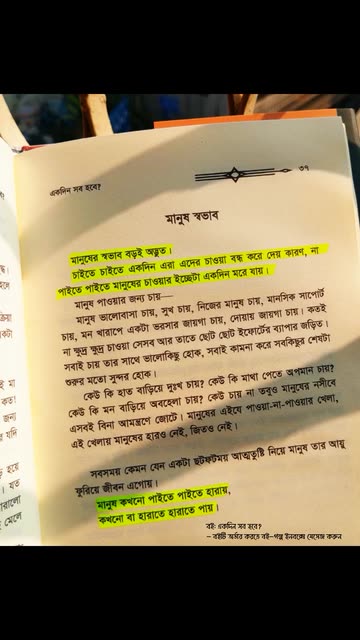 একদিন সব হবে?
৩৭
মানুষ স্বভাব
মানুষের স্বভাব বড়ই অদ্ভুত।
চাইতে চাইতে একদিন এরা এদের চাওয়া বন্ধ করে দেয় কারণ, না
পাইতে পাইতে মানুষের চাওয়ার ইচ্ছেটা একদিন মরে যায়।
মানুষ পাওয়ার জন্য চায়—
মানুষ ভালোবাসা চায়, সুখ চায়, নিজের মানুষ চায়, মানসিক সাপোর্ট
চায়, মন খারাপে একটা ভরসার জায়গা চায়, দোয়ায় জায়গা চায়। কতই
না ক্ষুদ্র ক্ষুদ্র চাওয়া সেসব আর তাতে ছোট ছোট ইফোর্টের ব্যাপার জড়িত।
সবাই চায় তার সাথে ভালোকিছু হোক, সবাই কামনা করে সবকিছুর শেষটা
শুরুর মতো সুন্দর হোক।
কেউ কি হাত বাড়িয়ে দুঃখ চায়? কেউ কি মাথা পেতে অপমান চায়?
কেউ কি মন বাড়িয়ে অবহেলা চায়? কেউ চায় না তবুও মানুষের নসীবে
এসবই বিনা আমন্ত্রণে জোটে। মানুষের এইযে পাওয়া-না-পাওয়ার খেলা,
এই খেলায় মানুষের হারও নেই, জিতও নেই।
সবসময় কেমন যেন একটা ছটফটময় আত্মতুষ্টি নিয়ে মানুষ তার আয়ু
ফুরিয়ে জীবন এগোয়।
মানুষ কখনো পাইতে পাইতে হারায়,
কখনো বা হারাতে হারাতে পায়।
বই: একদিন সব হবে?
– বইটি অর্ডার করতে বই-গল্প ইনবক্সে মেসেজ করুন